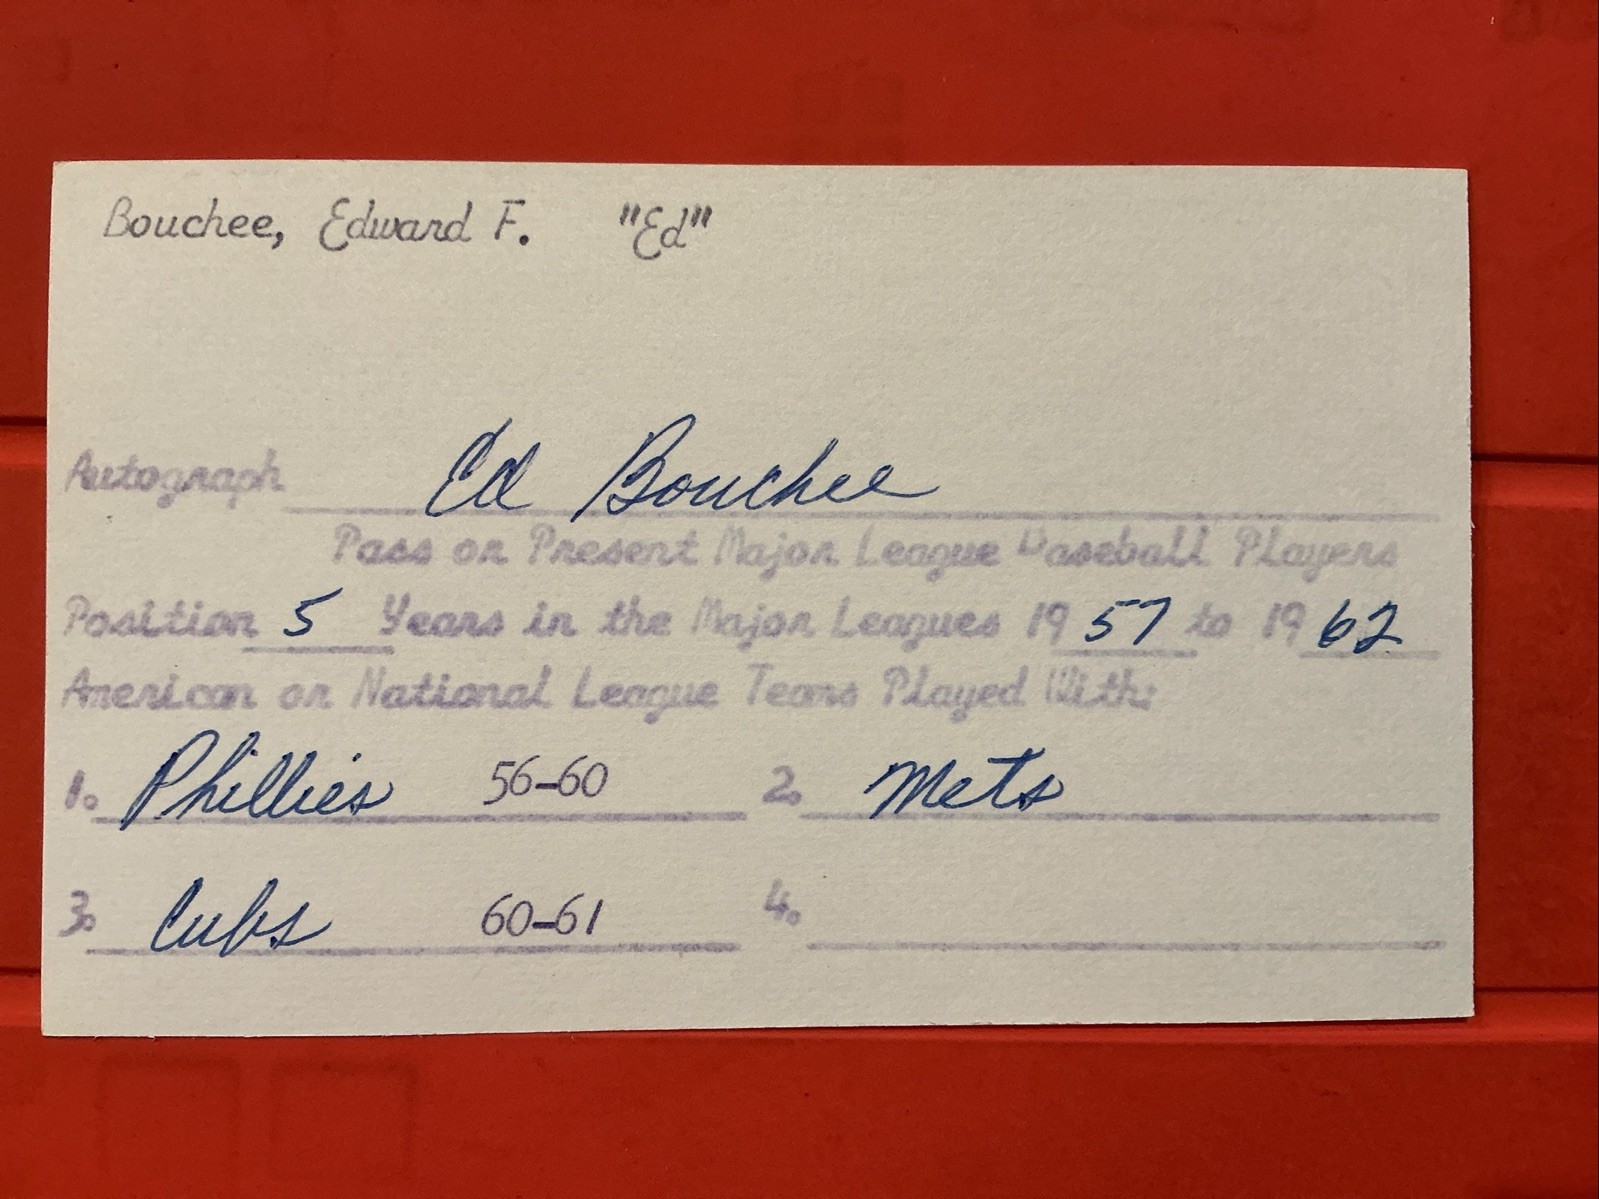 Bouchee, Edward F. "Ed"
Autograph Ed Bouchee
Pass or Present Major League Baseball Players
Position 5 Years in the Major Leagues 19 57 to 19 62
American or National League Teams Played With:
1. Phillies 56-60 2. Mets
3. Cubs 60-61 4.